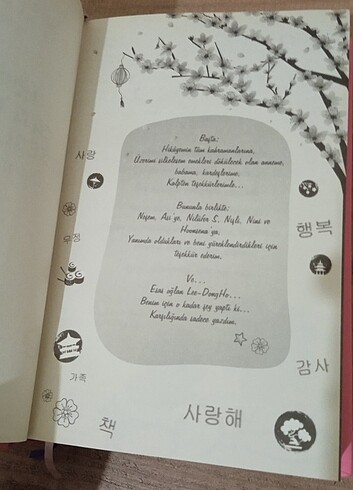 Başta;
Hikâyenin tüm kahramanlarına,
Üzerime silkelesem emekleri dökülecek olan anneme,
babama, kardeşlerime,
Kalpten teşekkürlerimle...
Bununla birlikte;
Neşem, Aslı'ya, Nilüfer S. Nişli, Nini ve
Hoonsena'ya,
Yanımda oldukları ve beni yüreklendirdikleri için
teşekkür ederim.
Ve...
Esas oğlan Lee-DongHo...
Benim için o kadar şey yaptı ki...
Karşılığında sadece yazdım.
사랑
우정
가족
책
사랑해
행복
감사